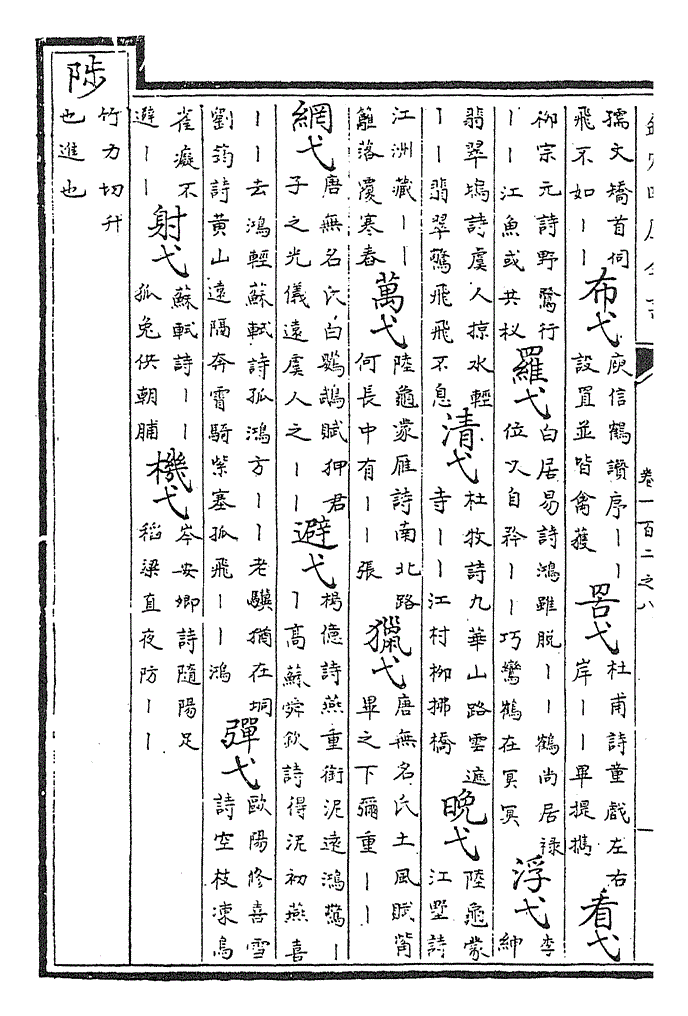 卷一百二之八
孺文矯首伺
飛不如丨丨
布弋
庾信鶴讚序丨丨
設罝並皆禽獲
罟弋
杜甫詩童戲左右
岸丨丨畢提攜
看弋
柳宗元詩野鶩行
丨丨江魚或共杈
羅弋
白居易詩鴻雖脫丨丨鶴尚居祿
位以自矜丨丨巧鸞鶴在冥冥
浮弋
李
紳
翡翠塢詩虞人掠水輕
丨丨翡翠驚飛飛不息
清弋
杜牧詩九華山路雲遮
寺丨丨江村柳拂橋
晚弋
陸龜蒙
江墅詩
江洲藏丨丨
籬落覆寒舂
萬弋
陸龜蒙雁詩南北路
何長中有丨丨張
獵弋
唐無名氏土風賦觜
畢之下彌重丨丨
網弋
唐無名氏白鸚鵡賦狎君
子之光儀遠虞人之丨丨
避弋
楊億詩燕重銜泥遠鴻驚丨
丨高蘇舜欽詩得泥初燕喜
丨丨去鴻輕蘇軾詩孤鴻方丨丨老驥猶在坰
劉筠詩黃山遠隔奔霄騎紫塞孤飛丨丨鴻
彈弋
歐陽修喜雪
詩空枝凍鳥
雀癡不
避丨丨
射弋
蘇軾詩丨丨
狐兔供朝脯
機弋
岑安卿詩隨陽足
稻粱直夜防丨丨
陟
竹力切升
也進也